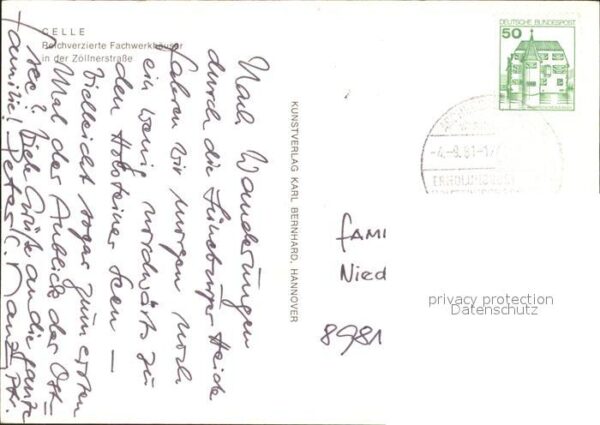 CELLE
Reichverzierte Fachwerkhäuser
in der Zöllnerstraße
Nach Wanderungen
durch die Lüneburger Heide
fahren wir morgen noch
ein wenig nordwärts zu
den Holsteiner Seen —
vielleicht sogar zum ersten
Mal der Anblick der Ost-
see? Viele Grüße an die ganze
Familie! Peter
KUNSTVERLAG KARL BERNHARD, HANNOVER
DEUTSCHE BUNDESPOST
50
-4.-9.81-17
FAMI
Nied
8981
privacy protection
Datenschutz